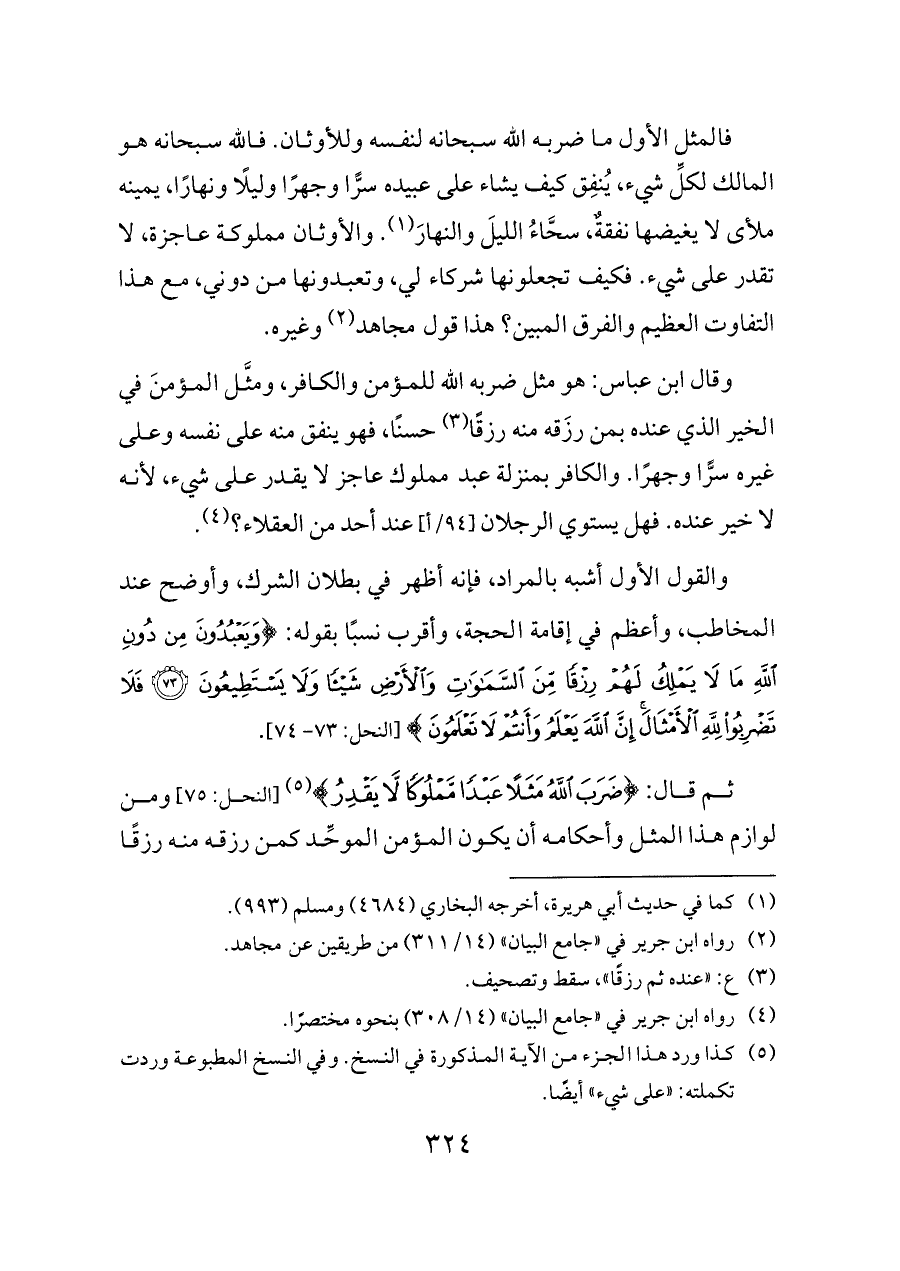 فالمثل الأول ما ضربه الله سبحانه لنفسه وللأوثان. فالله سبحانه هو
المالك لكلِّ شيء، يُنفِق كيف يشاء على عبيده سرًّا وجهرًا وليلًا ونهارًا، يمينه
ملأى لا يغيضها نفقةٌ، سحَّاءُ الليلَ والنهارَ(١). والأوثان مملوكة عاجزة، لا
تقدر على شيء. فكيف تجعلونها شركاء لي، وتعبدونها من دوني، مع هذا
التفاوت العظيم والفرق المبين؟ هذا قول مجاهد(٢) وغيره.
وقال ابن عباس: هو مثل ضربه الله للمؤمن والكافر، ومثَّل المؤمنَ في
الخير الذي عنده بمن رزَقه منه رزقًا(٣) حسنًا، فهو ينفق منه على نفسه وعلى
غيره سرًّا وجهرًا. والكافر بمنزلة عبد مملوك عاجز لا يقدر على شيء، لأنه
لا خير عنده. فهل يستوي الرجلان [٩٤/أ] عند أحد من العقلاء؟(٤).
والقول الأول أشبه بالمراد، فإنه أظهر في بطلان الشرك، وأوضح عند
المخاطب، وأعظم في إقامة الحجة، وأقرب نسبًا بقوله: ﴿وَيَعۡبُدُونَ مِن دُونِ
ٱللَّهِ مَا لَا يَمۡلِكُ لَهُمۡ رِزۡقٗا مِّنَ ٱلسَّمَٰوَٰتِ وَٱلۡأَرۡضِ شَيۡـٔٗا وَلَا يَسۡتَطِيعُونَ ٧٣ فَلَا
تَضۡرِبُواْ لِلَّهِ ٱلۡأَمۡثَالَۚ إِنَّ ٱللَّهَ يَعۡلَمُ وَأَنتُمۡ لَا تَعۡلَمُونَ﴾ [النحل: ٧٣- ٧٤].
ثم قال: ﴿ضَرَبَ ٱللَّهُ مَثَلًا عَبۡدٗا مَّمۡلُوكٗا لَّا يَقۡدِرُ﴾(٥) [النحل: ٧٥] ومن
لوازم هذا المثل وأحكامه أن يكون المؤمن الموحِّد كمن رزقه منه رزقًا
(١) كما في حديث أبي هريرة، أخرجه البخاري (٤٦٨٤) ومسلم (٩٩٣).
(٢) رواه ابن جرير في «جامع البيان» (١٤/ ٣١١) من طريقين عن مجاهد.
(٣) ع: «عنده ثم رزقًا»، سقط وتصحيف.
(٤) رواه ابن جرير في «جامع البيان» (١٤/ ٣٠٨) بنحوه مختصرًا.
(٥) كذا ورد هذا الجزء من الآية المذكورة في النسخ. وفي النسخ المطبوعة وردت
تكملته: «على شيء» أيضًا.
٣٢٤